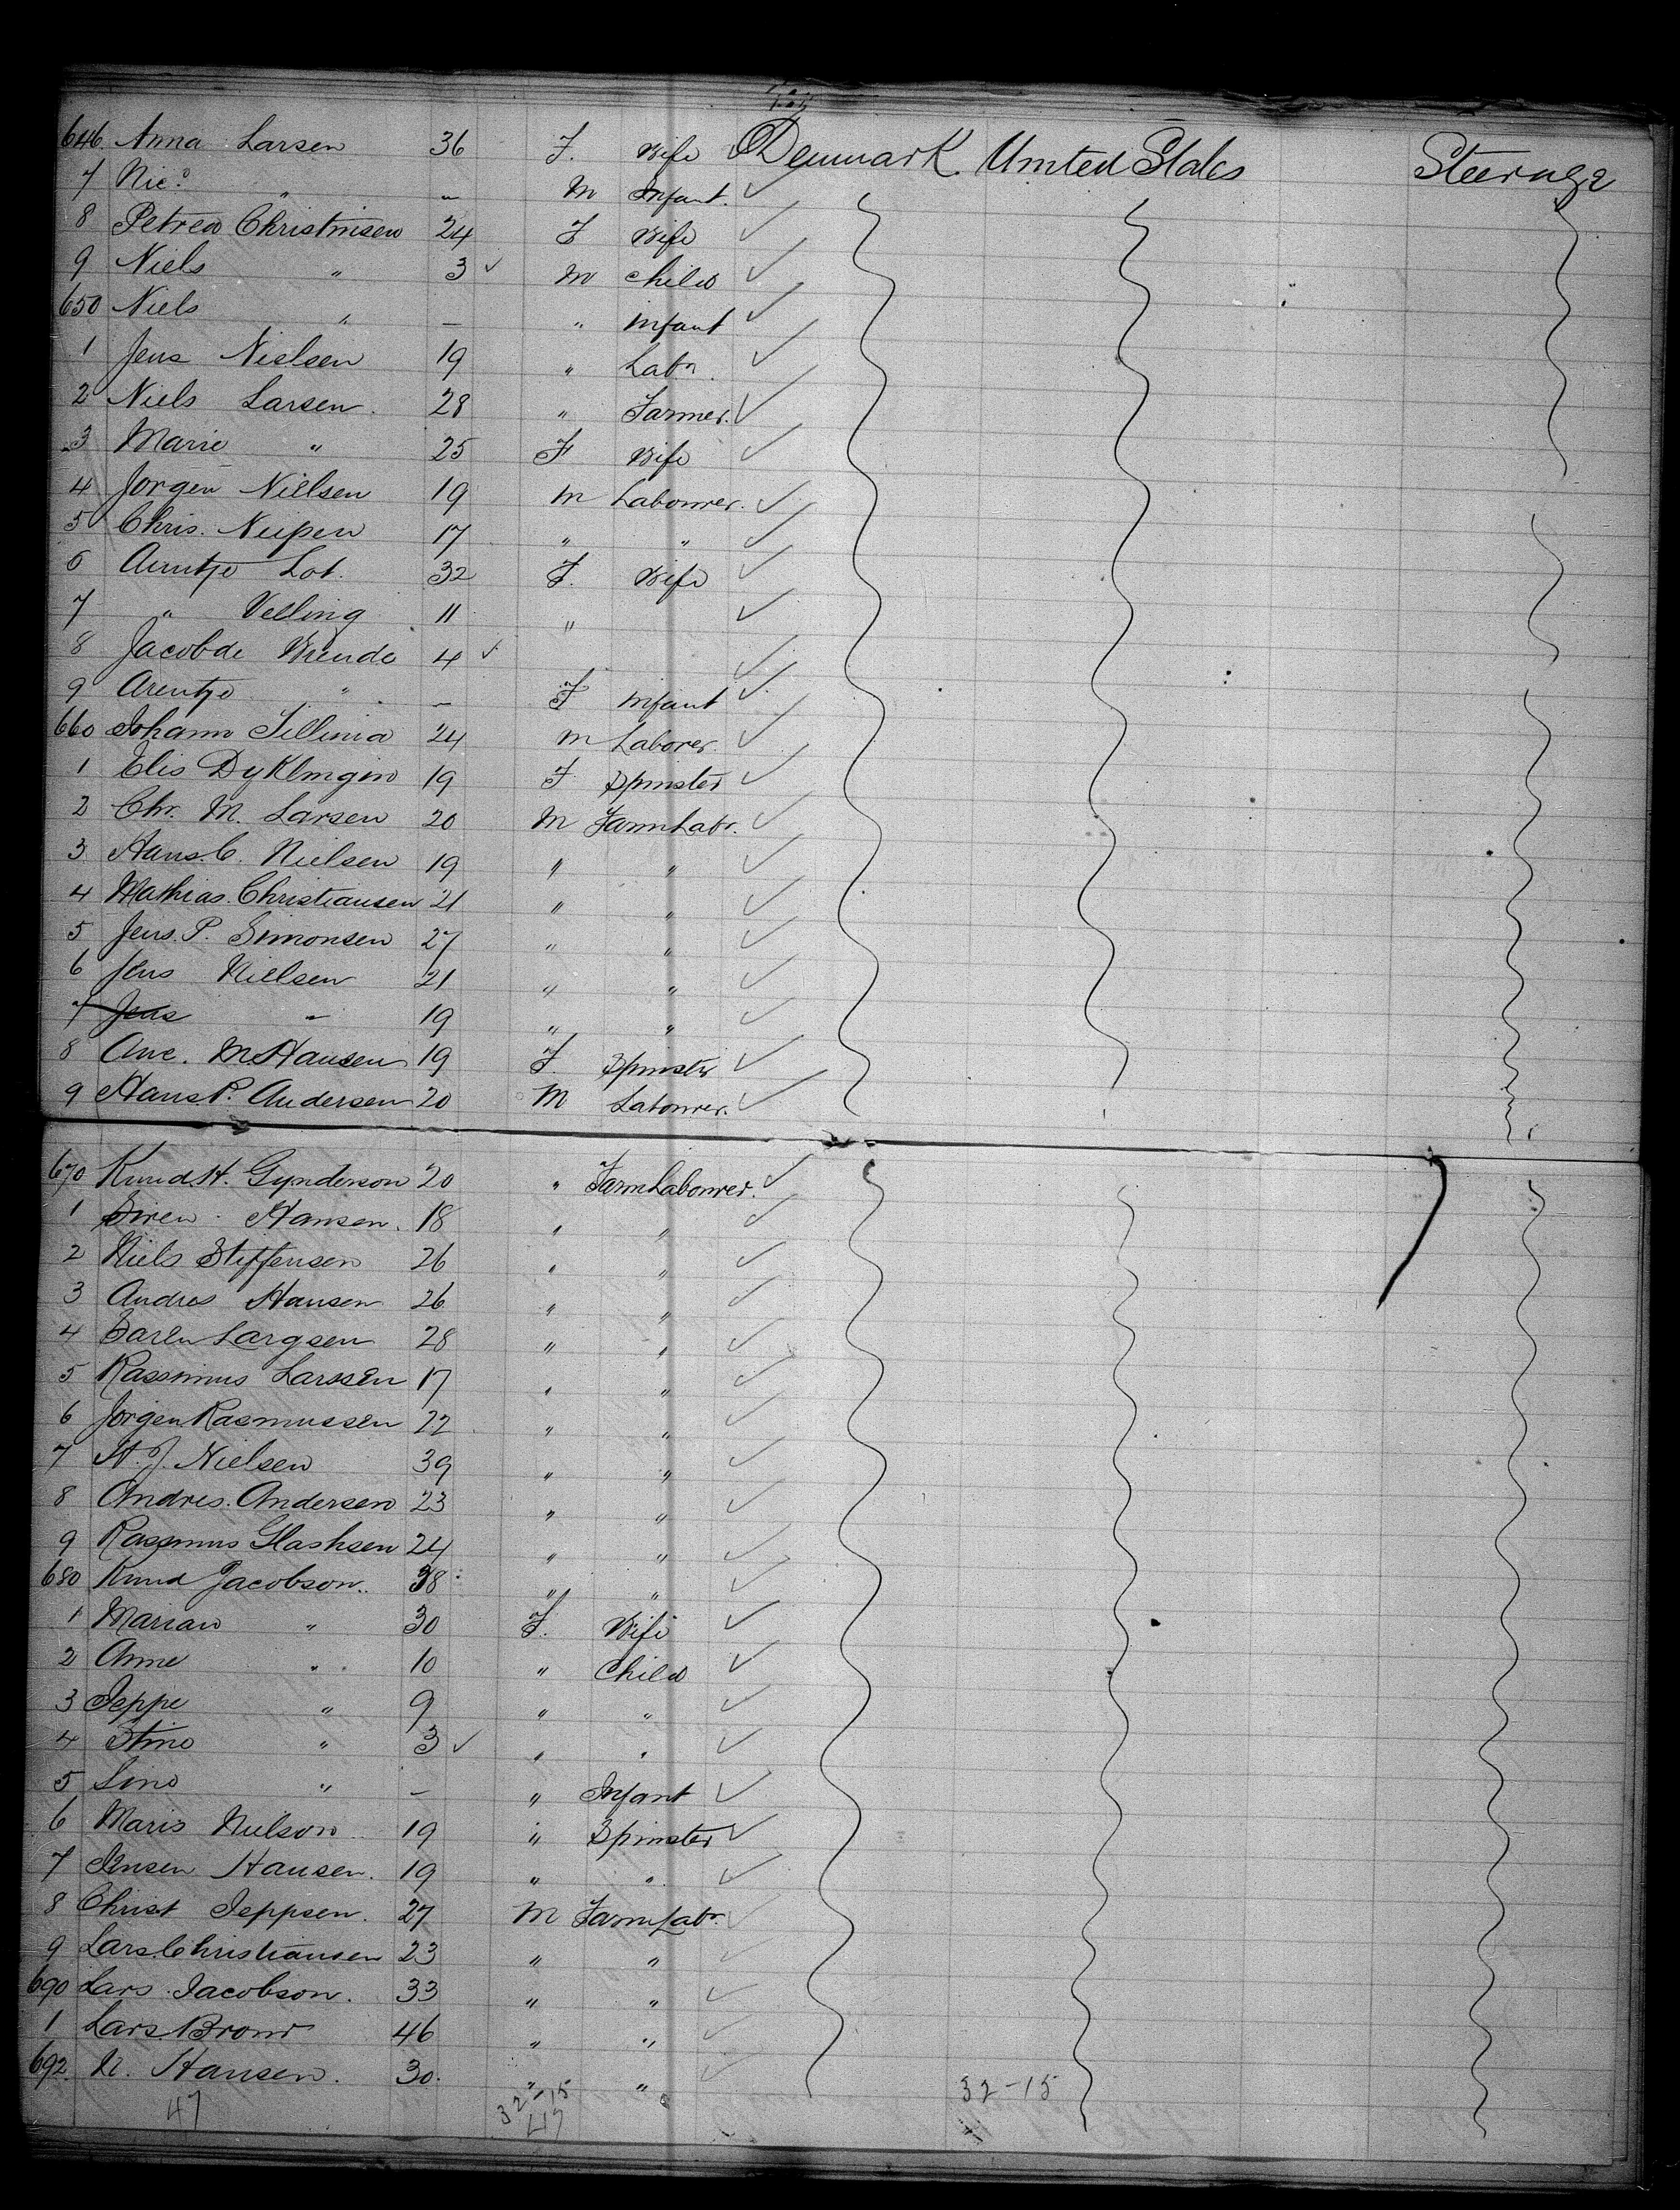 646. Anna Larsen 36 F. Wife Denmark. United States Steerage
7 Nic. " — M Infant.
8 Petrea Christinsen 24 F Wife
9 Niels " 3 M Child
650 Niels " — " Infant
1 Jens Nielsen 19 " Labr.
2 Niels Larsen. 28 " Farmer.
3 Marie " 25 F Wife
4 Jorgen Nielsen 19 M Labourer.
5 Chris. 17 " "
6 Lot. 32 F. Wife
7 " Velling 11 "
8 Jacob de 4
9 Arentje " — F Infant
660 Johann 24 M Laborer.
1 Elis 19 F Spinster
2 Chr. M. Larsen 20 M Farm Labr.
3 Hans. C. Nielsen 19 " "
4 Mathias. Christiansen 21 " "
5 Jens. P. Simonsen 27 " "
6 Jens Nielsen 21 " "
7 Jens " 19 " "
8 Ane. M. Hansen 19 F. Spinster
9 Hans. P. Andersen 20 M Labourer.
670 Knud H. Gynderson 20 " Farm Labourer.
1 Siren Hansen. 18 " "
2 Niels Stiffensen 26 " "
3 Andres Hansen 26 " "
4 Largsen 28 " "
5 Rassmus Larssen 17 " "
6 Jorgen Rasmussen 22 " "
7 H. J. Nielsen 39 " "
8 Andres. Andersen 23 " "
9 Rassmus 24 " "
680 Knud Jacobson. 38 " "
1 Marian " 30 F. Wife
2 Anne " 10 " Child
3 Jeppe " 9 " "
4 Stine " 3 " "
5 Line " — " Infant
6 Maris Nielson 19 " Spinster
7 Jensen Hansen. 19 " "
8 Christ Jeppsen. 27 M Farm Labr.
9 Lars. Christiansen 23 " "
690 Lars. Jacobson. 33 " "
1 Lars. 46 " "
692. N. Hansen. 30. " "
47 32-15 32-15
47